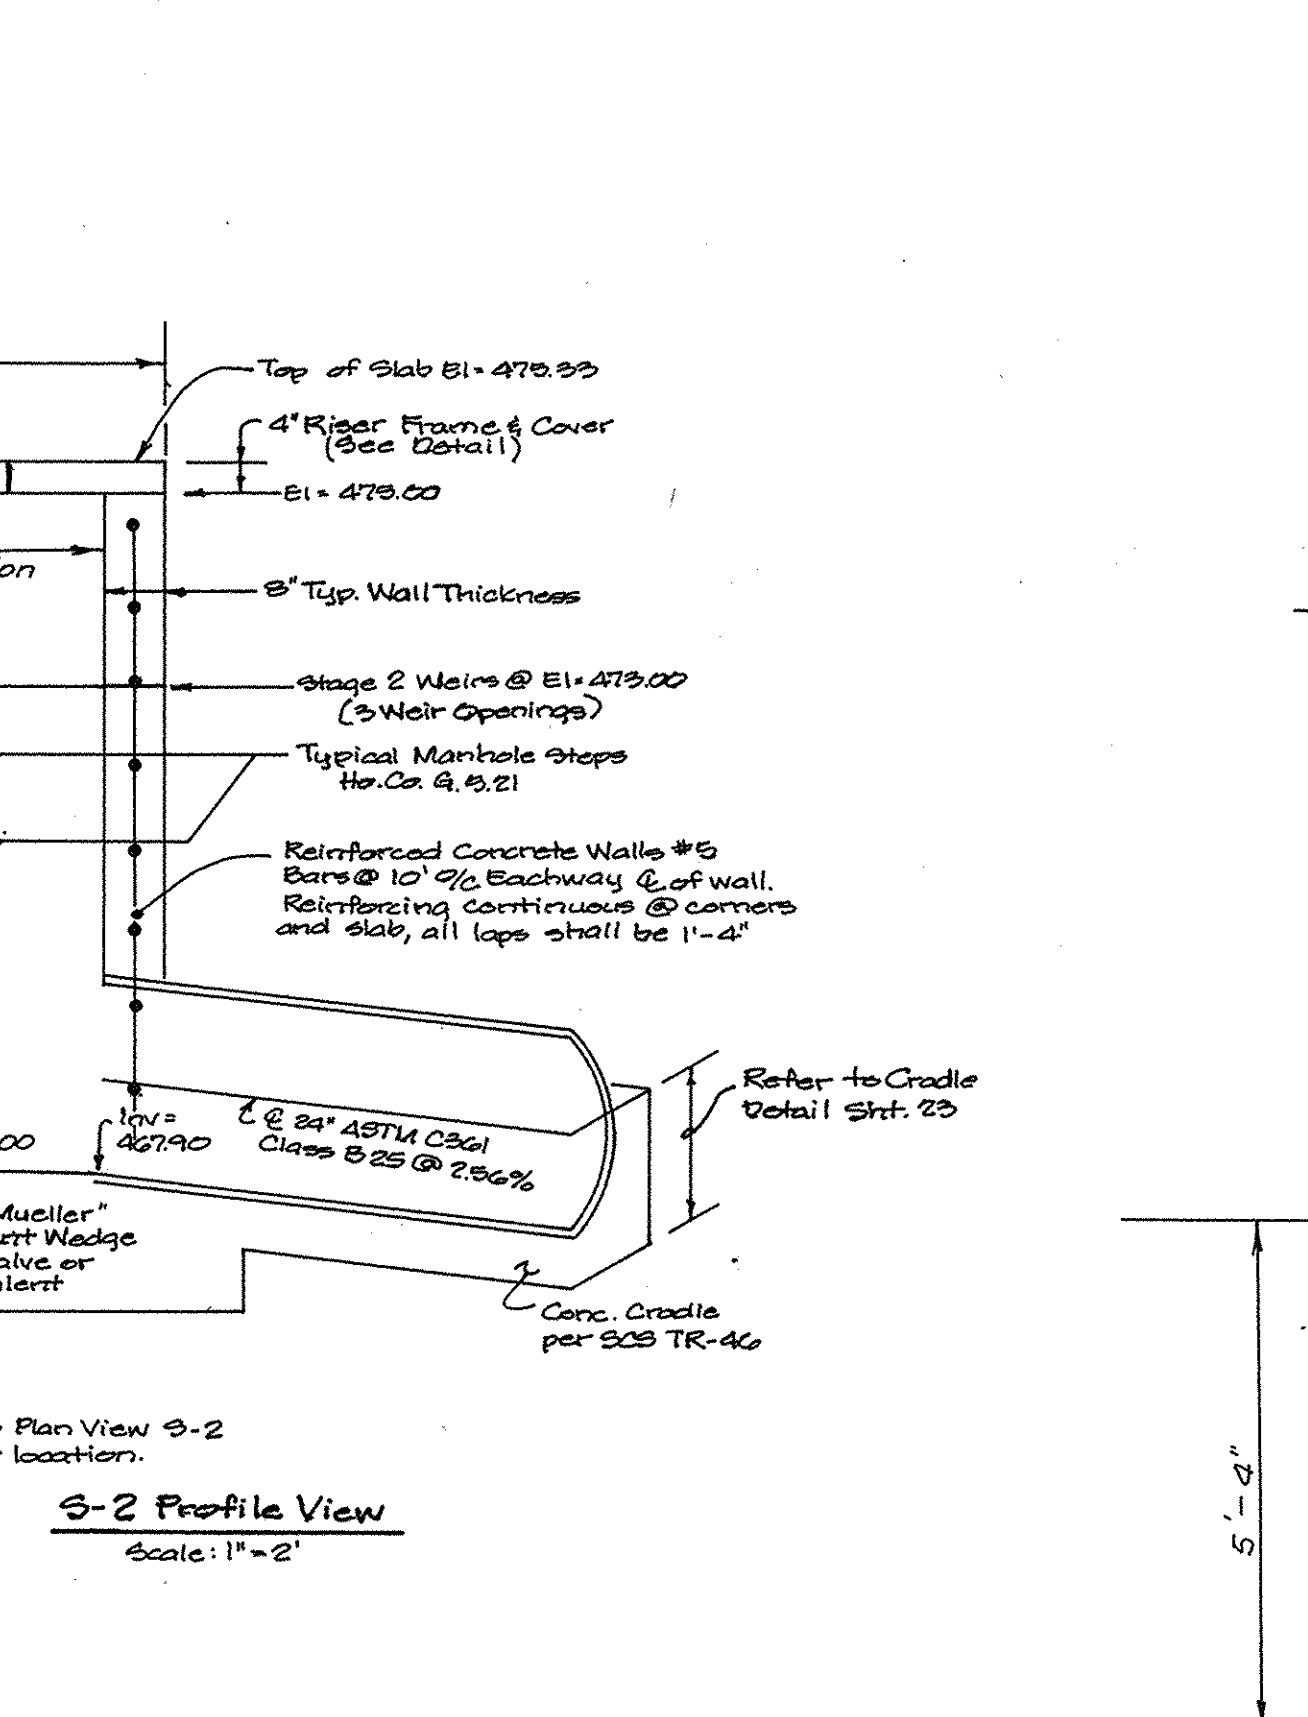 Top of Slab El = 475.33
4" Riser Frame & Cover
(See Detail)
El = 475.00
on
8" Typ. Wall Thickness
Stage 2 Weirs @ El = 473.00
(3 Weir Openings)
Typical Manhole Steps
Ho. Co. G. 5.21
Reinforced Concrete Walls #5
Bars @ 10' o/c Eachway ℄ of wall.
Reinforcing continuous @ corners
and slab, all laps shall be 1'-4"
Refer to Cradle
Detail Sht. 23
Inv =
467.90
℄ 24" ASTM C361
Class B 25 @ 2.56%
00
Mueller"
nt Wedge
alve or
alent
Conc. Cradle
per SCS TR-46
Plan View S-2
location.
S-2 Profile View
Scale: 1" = 2'
5'-4"